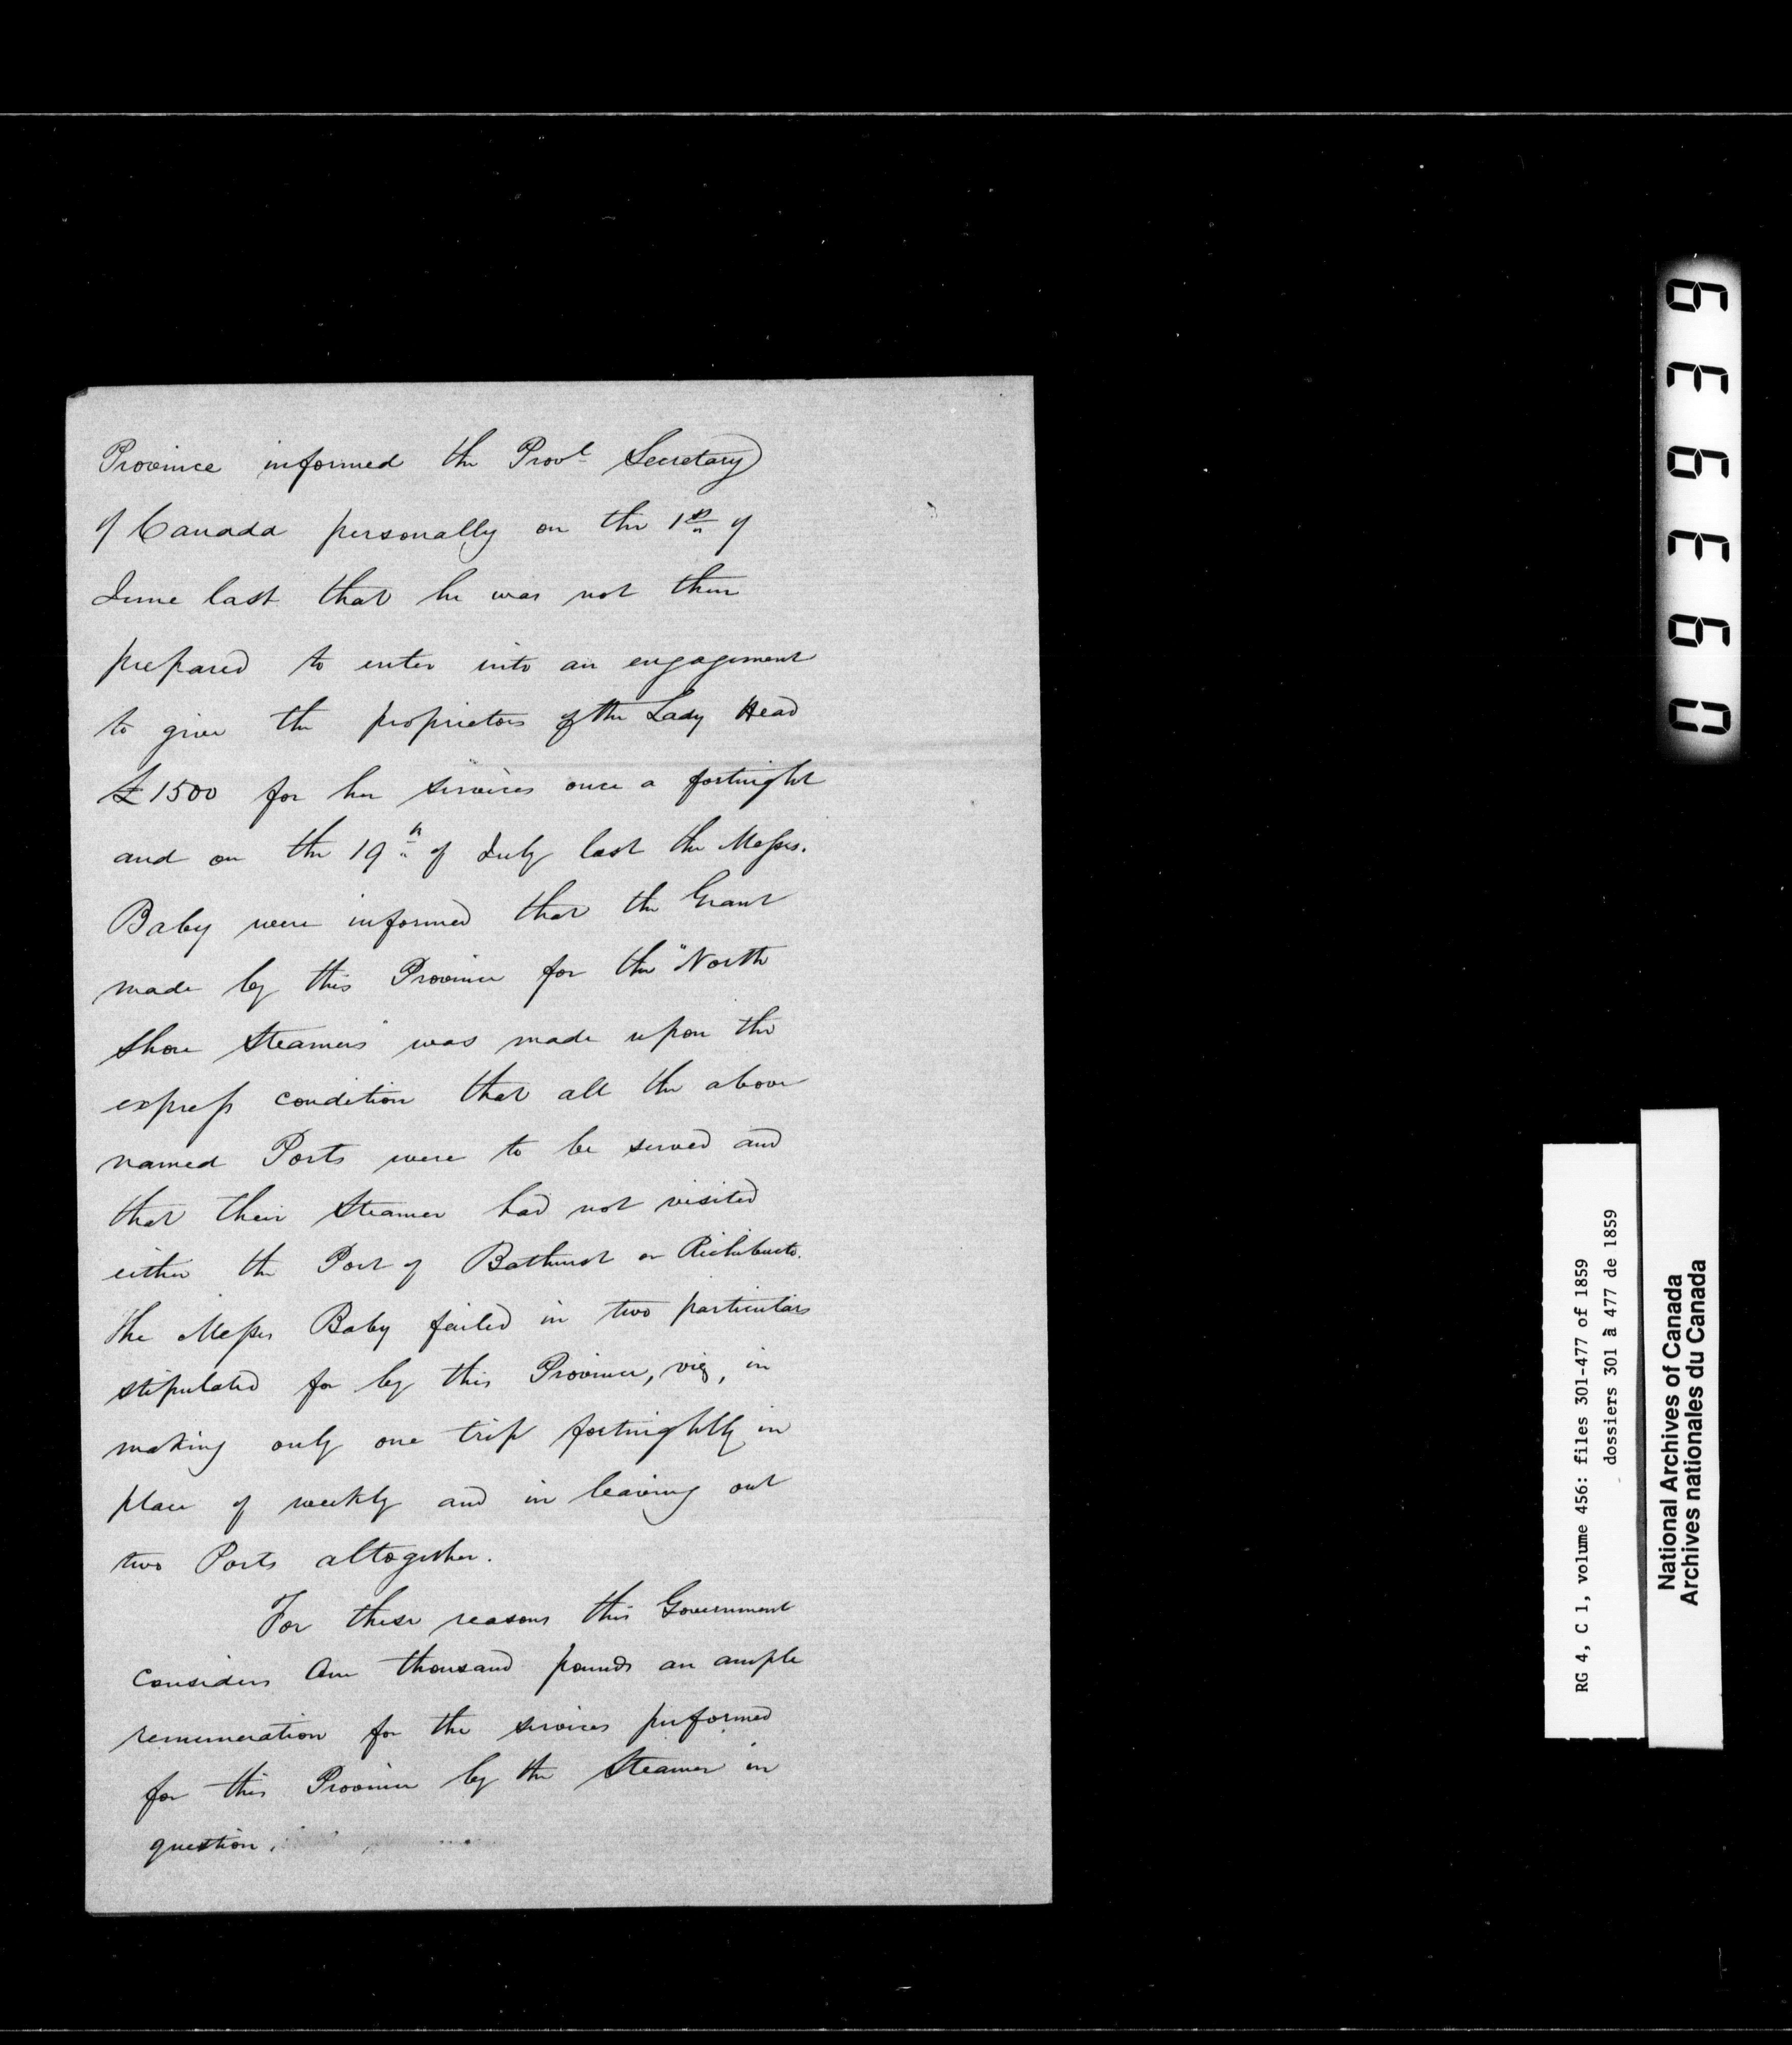 Province informed the Provl Secretary
of Canada personally on the 1st of
June last that he was not then
prepared to enter into an engagement
to give the proprietors of the Lady Head
£1500 for her services once a fortnight
and on the 19th of July last the Messrs.
Baby were informed that the Grant
made by this Province for the "North
Shore Steamers" was made upon the
express condition that all the above
named Ports were to be served and
that their Steamer had not visited
either the Port of Bathurst or Richibucto.
The Messrs Baby failed in two particulars
stipulated for by this Province, viz, in
making only one trip fortnightly in
place of weekly and in leaving out
two Ports altogether.
For these reasons this Government
considers One thousand pounds an ample
remuneration for the services performed
for this Province by the Steamer in
question.
093939
RG 4, C 1, volume 456: files 301-477 of 1859
dossiers 301 à 477 de 1859
National Archives of Canada
Archives nationales du Canada